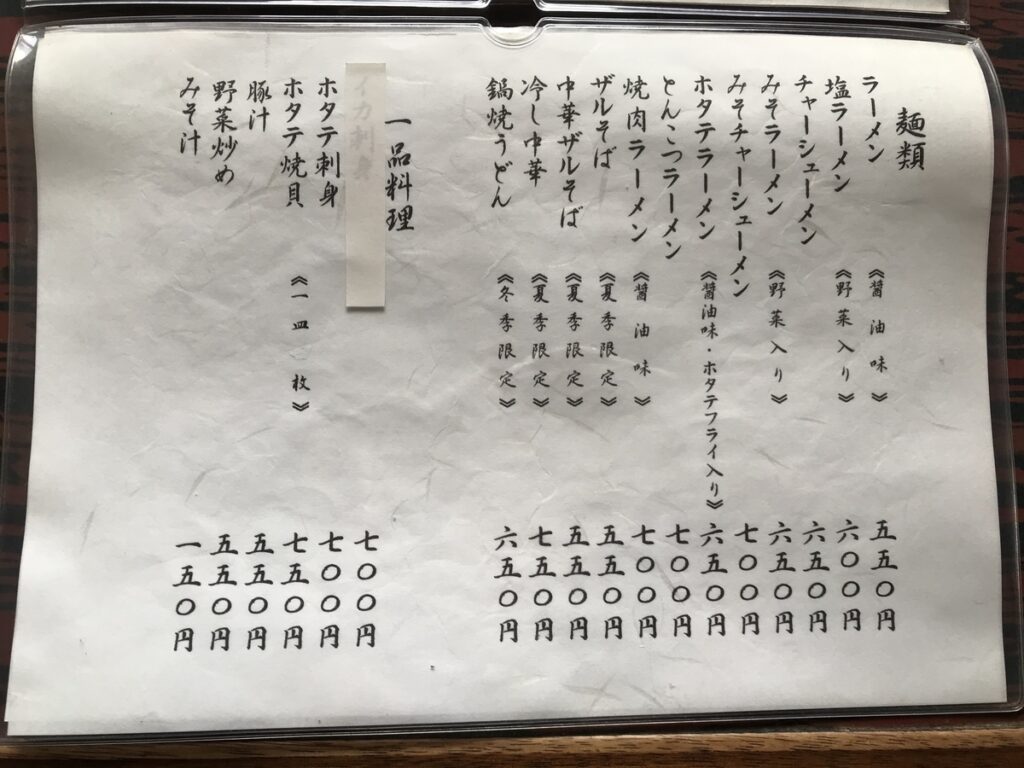 麺類
ラーメン 《醤油味》 五五〇円
塩ラーメン 《野菜入り》 六〇〇円
チャーシューメン 六五〇円
みそラーメン 《野菜入り》 六五〇円
みそチャーシューメン 七〇〇円
ホタテラーメン 《醤油味・ホタテフライ入り》 六五〇円
とんこつラーメン 七〇〇円
焼肉ラーメン 《醤油味》 七〇〇円
ザルそば 《夏季限定》 五五〇円
中華ザルそば 《夏季限定》 五五〇円
冷し中華 《夏季限定》 七五〇円
鍋焼うどん 《冬季限定》 六五〇円
一品料理
イカ刺身 七〇〇円
ホタテ刺身 七〇〇円
ホタテ焼貝 《一皿 枚》 七五〇円
豚汁 五五〇円
野菜炒め 五五〇円
みそ汁 一五〇円